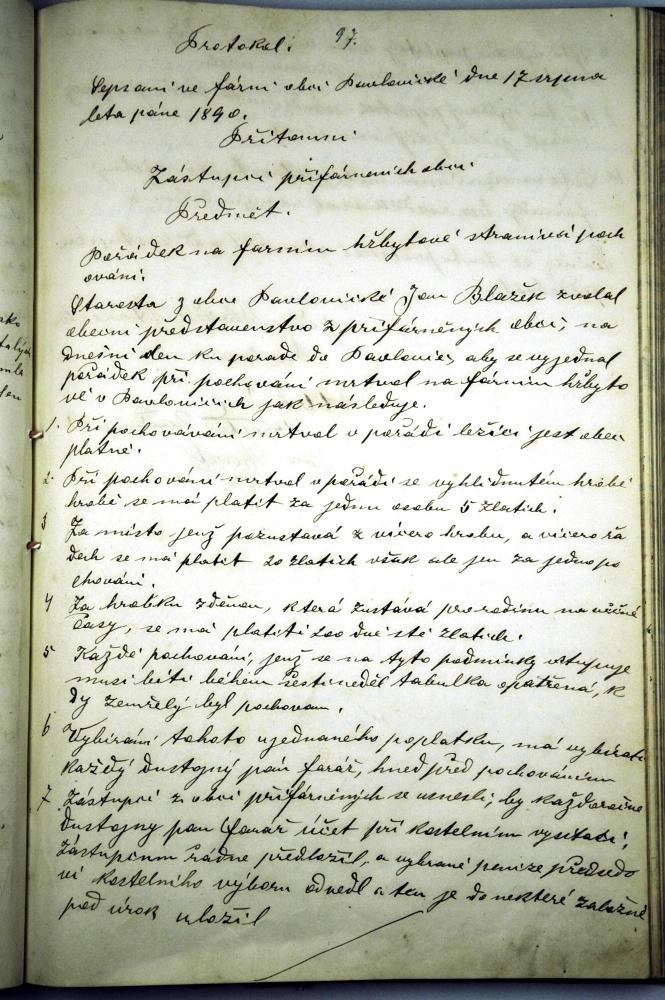 97.
Protokol.
Sepsaní ve fární obci Pavlovické dne 17 srpna
leta páne 1890.
Přítomni
Zástupci přifárnenich obci
Předmět.
Pořádek na farním hřbytově poch
ování.
Starosta z obce Pavlovické Jan Blažek zvolal
obecni představenstvo z přifárněných obcí, na
dnešní den ku poradě do Pavlovic, aby se vyjednal
pořádek při pochování mrtvol na fárním hřbyto
vě v Pavlovicich jak následuje.
1. Při pochovávání mrtvol v pořádí ležící jest obec
platné.
2. Při pochování mrtvol v pořádí se vyhlídnutém hrobě
hrobě se má platit za jednu osobu 5 zlatich.
3 Za místo jenž pozustavá z vícero hrobu, a vícero řa
dech se má platit 20 zlatich však ale jen za jedno po
chování.
4 Za hrobku zděnou, která zustává pro rodinu na věčné
časy, se má platiti 200 dvě stě zlatich.
5 Každé pochování, jenž se na tyto podmínky vstupuje
musí býti během šesti neděl tabulka opatřená, k
dy zemřelý byl pochovan.
6 Vybíraní tohoto ujednaného poplatku, má vybírati
každý Dustojný pán farář, hned před pochovaním
7 Zástupci z obci přifárněných se usnesli, by každoročně
Dustojny pan farář účet při kostelním
Zástupcum řádne předložil, a vybrané penize předsedo
vi kostelního výboru odvedl a ten je do některé záložně
pod úrok uložil